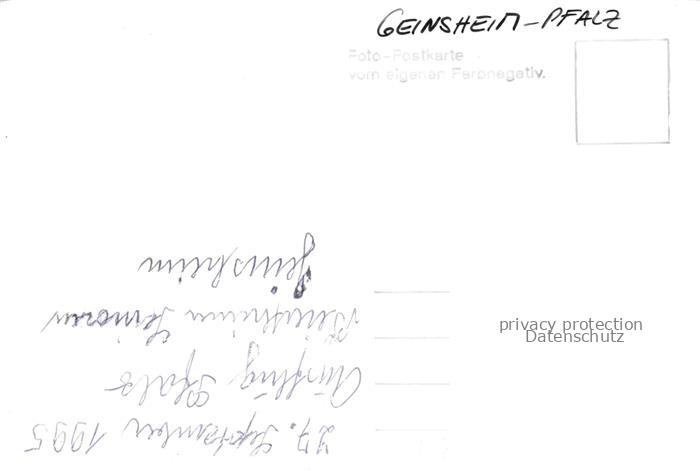 GEINSHEIM-PFALZ
Foto-Postkarte
vom eigenen Farbnegativ.
privacy protection
Datenschutz
27. September 1995
Ausflug Pfalz
Senioren
Geinsheim